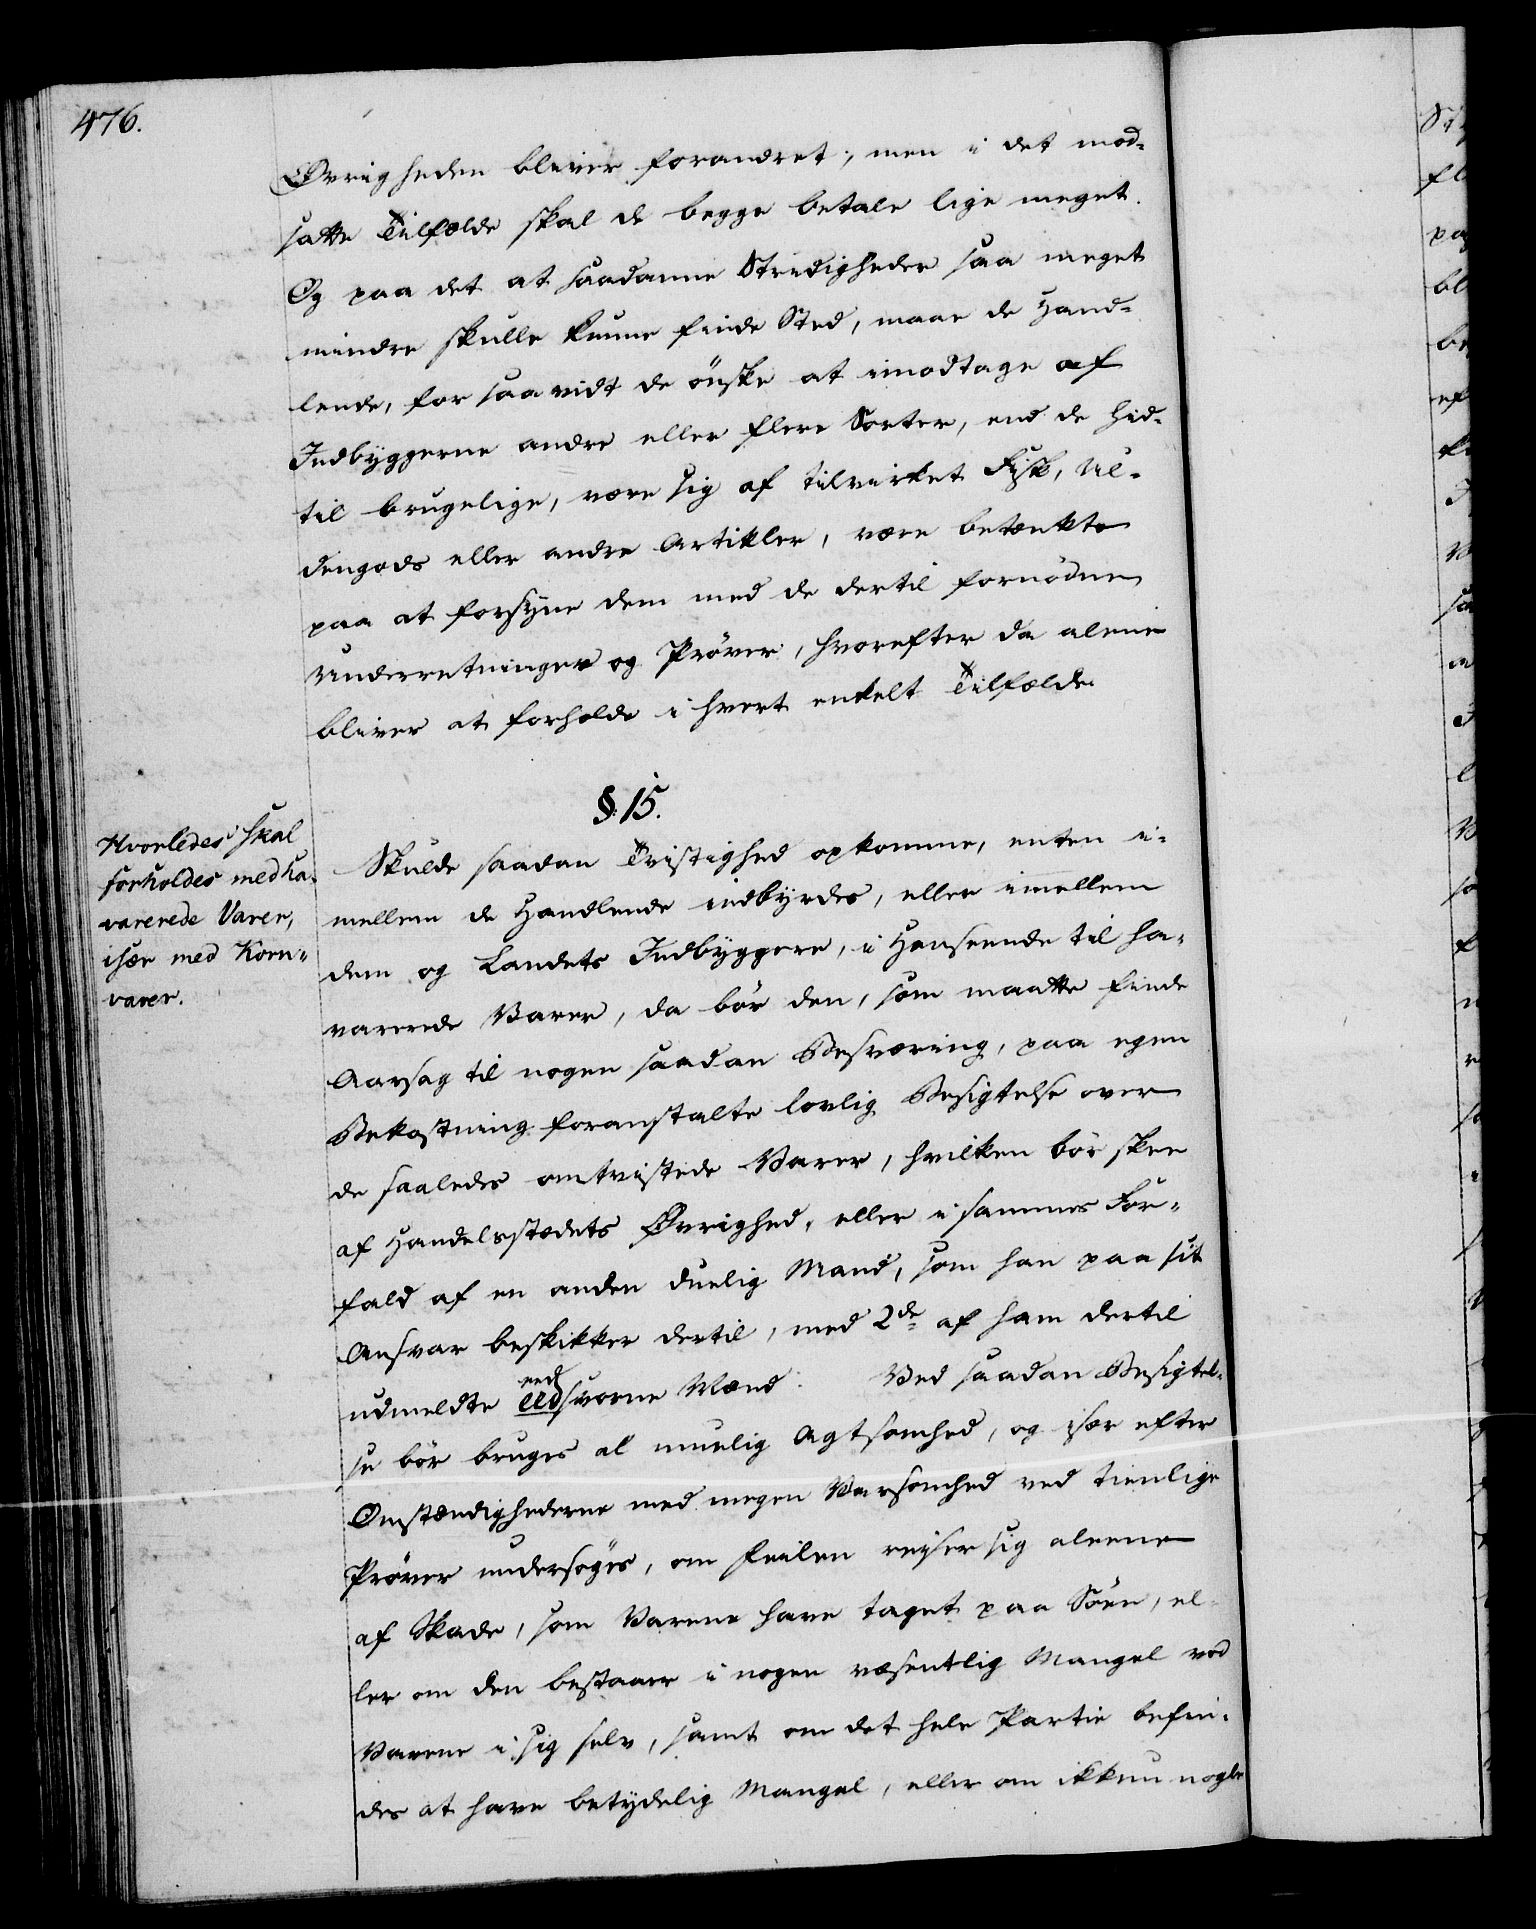 476.
Øvrigheden bliver forandret; men i det mod-
satte Tilfælde skal de begge betale lige meget.
Og paa det at saadanne Stridigheder saa meget
mindre skulle kunne finde Sted, maae de Hand-
lende, for saavidt de önske at imodtage af
Indbyggerne andre eller flere Sorter, end de hid-
til brugelige, være sig af tilvirket Fisk, Ul-
dengods eller andre Artikler, være betænkte
paa at forsyne dem med de dertil fornödne
Underretninger og Pröver, hvorefter da alene
bliver at forholde i hvert enkelt Tilfælde.
§. 15.
Hvorledes skal
forholdes med ha-
varerede Varer,
især med Korn-
varer.
Skulde saadan Tvistighed opkomme, enten i-
mellem de Handlende indbyrdes, eller imellem
dem og Landets Indbyggere, i Henseende til ha-
varerede Varer, da bör den, som maatte finde
Aarsag til nogen saadan Besværing, paa egen
Bekostning foranstalte lovlig Besigtelse over
de saaledes omtvistede Varer, hvilken bör skee
af Handelsstædets Øvrighed, eller i sammes For-
fald af en anden duelig Mand, som han paa sit
Ansvar beskikker dertil, med 2de af ham dertil
udmeldte eedsvorne Mænd. Ved saadan Besigtel-
se bör bruges al muelig Agtsomhed, og især efter
Omstændighederne med megen Varsomhed ved tienlige
Pröver undersöges, om Feilen reiser sig aleene
af Skade, som Varene have taget paa Söen, el-
ler om den bestaaer i nogen væsentlig Mangel ved
Varene i sig selv, samt om det hele Partie befin-
des at have betydelig Mangel, eller om ikkun nogle